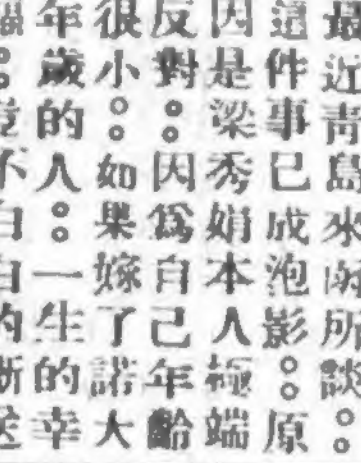 最近青島來函所談。
這件事已成泡影。原
因是梁秀娟本人極端
反對。因爲自己年齡
很小。如果嫁了諾大
年歲的人。一生的幸
福。豈不白白的斷送